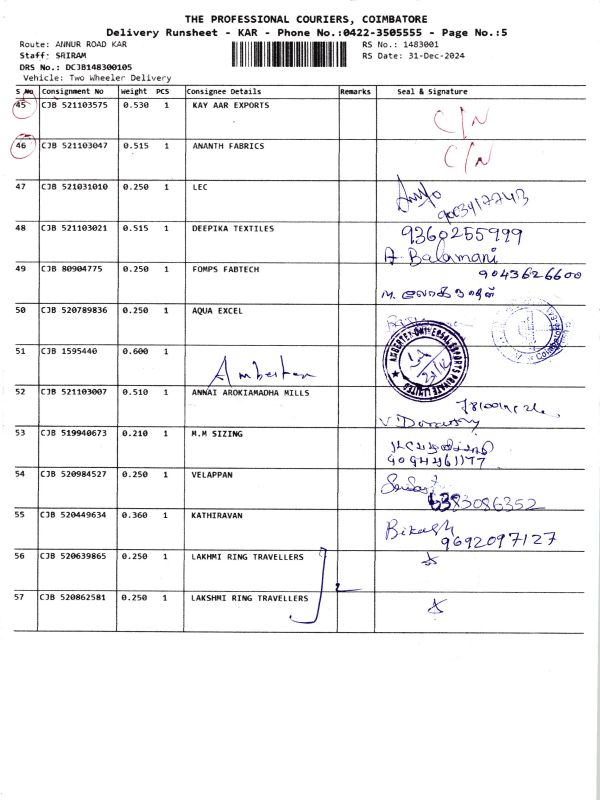 THE PROFESSIONAL COURIERS, COIMBATORE
Delivery Runsheet - KAR - Phone No.:0422-3505555 - Page No.:5
Route: ANNUR ROAD KAR
RS No.: 1483001
Staff: SRIRAM
RS Date: 31-Dec-2024
DRS No.: DCJB148300105
Vehicle: Two Wheeler Delivery
S No Consignment No Weight PCS Consignee Details Remarks Seal & Signature
45 CJB 521103575 0.530 1 KAY AAR EXPORTS C/N
46 CJB 521103047 0.515 1 ANANTH FABRICS C/N
47 CJB 521031010 0.250 1 LEC
48 CJB 521103021 0.515 1 DEEPIKA TEXTILES 9360255999
A. Balamani
49 CJB 80904775 0.250 1 FOMPS FABTECH 9043626600
50 CJB 520789836 0.250 1 AQUA EXCEL
51 CJB 1595440 0.600 1
52 CJB 521103007 0.510 1 ANNAI AROKIAMADHA MILLS
53 CJB 519940673 0.210 1 M.M SIZING
54 CJB 520984527 0.250 1 VELAPPAN
6383086352
55 CJB 520449634 0.360 1 KATHIRAVAN Bikash
9692097127
56 CJB 520639865 0.250 1 LAKHMI RING TRAVELLERS
57 CJB 520862581 0.250 1 LAKSHMI RING TRAVELLERS